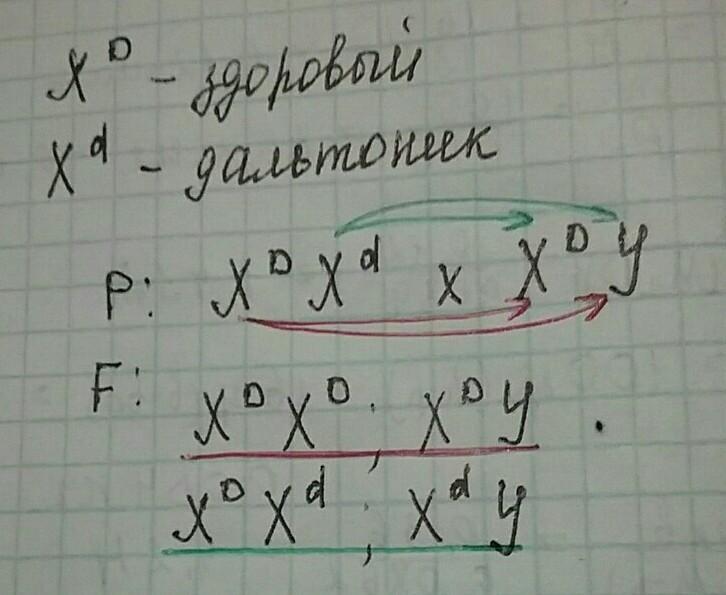 X^D - здоровый
X^d - дальтоник
P: X^D X^d x X^D У
F: X^D X^D; X^D У.
X^D X^d; X^d У